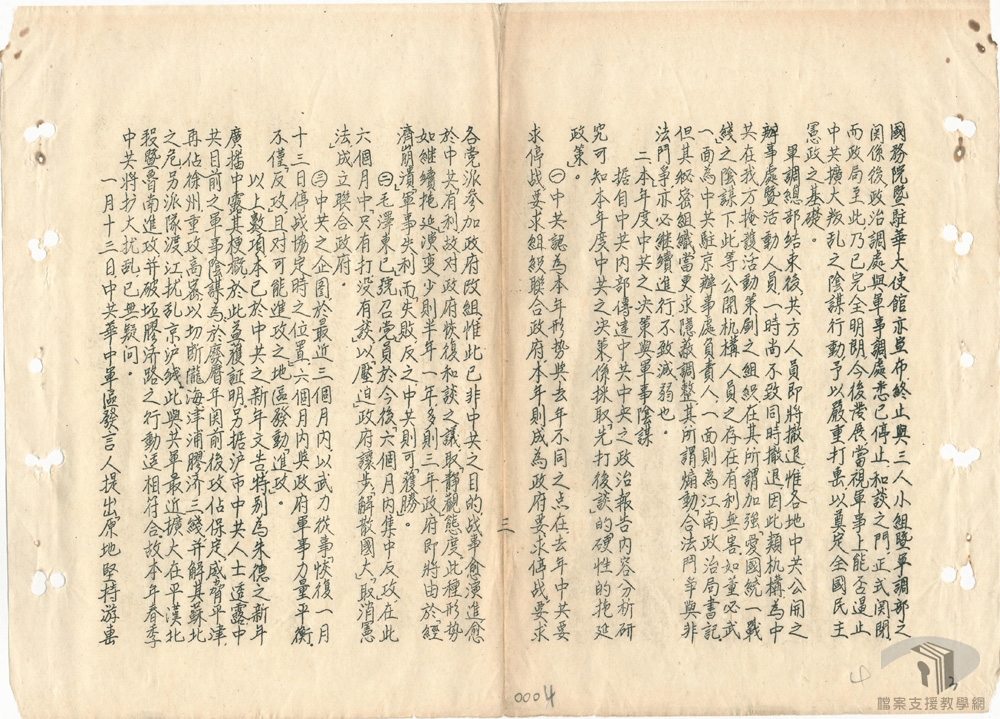 國務院暨駐華大使館亦宣布終止與三人小組暨軍調部之
関係後政治調處與軍事調處悉已停止和談之門正式関閉
而政局至此乃已完全明朗今後發展當視軍事上能否遏止
中共擴大叛乱之陰謀行動予以嚴重打击以奠定全國民主
憲政之基礎。
軍調總部結束後共方人員即將撤退惟各地中共公開之
辦事處暨活動人員一時尚不致同時撤退因此類机構為中
共在我方掩護活動策劃之組织在其所謂加強「愛國統一戰
綫」之陰謀下此等公開机構人員之存在有利無害如董必武
一面為中共駐京辦事處負責人一面則為江南政治局書記
但其秘密組織當更求隱蔽調整其所謂煽動合法鬥爭與非
法鬥爭亦必继續進行不致減弱也。
二、本年度中共之决策與軍事陰謀
据自中共内部傳達中共中央之政治報告内容分析研
究可知本年度中共之决策係採取「先打後談」的「硬性的拖延
政策」。
㊀中共認為本年形勢與去年不同之点在去年中共要
求停战要求組织聯合政府本年則成為政府要求停战要求
三
各党派参加政府改組惟此已非中共之目的战事愈演進愈
於中共有利故对政府恢復和談之議取靜觀態度此種形勢
如継續拖延演变少則半年一年多則三年政府即將由於「經
濟崩潰」「軍事失利」而失敗反之中共則可「獲勝」。
㊁毛澤東已號召党員於今後「六個月内集中反攻在此
六個月中只有打没有談」以壓迫政府讓步解散國大「取消憲
法」成立联合政府。
㊂中共之企圖於最近三個月内以武力從事恢復一月
十三日停战協定時之位置六個月内與政府軍事力量平衡
不僅「反攻」且对可能進攻之地區發動「進攻」。
以上數項本已於中共之新年文告特别為朱德之新年
廣播中露其梗概於此益獲証明另据沪市中共人士透露中
共目前之軍事陰謀為於廢曆年関前後攻佔保定威脅平津
再佔徐州重攻高郵以切断隴海津浦膠济三綫并解其苏北
之危另派隊渡江扰乱京沪綫此與共軍最近擴大在平漢北
段暨魯南進攻并破坏膠济路之行動适相符合故本年春季
中共將扩大扰乱已無疑问。
一月十三日中共華中軍區發言人提出「原地堅持游击
0004
3
檔案支援教學網